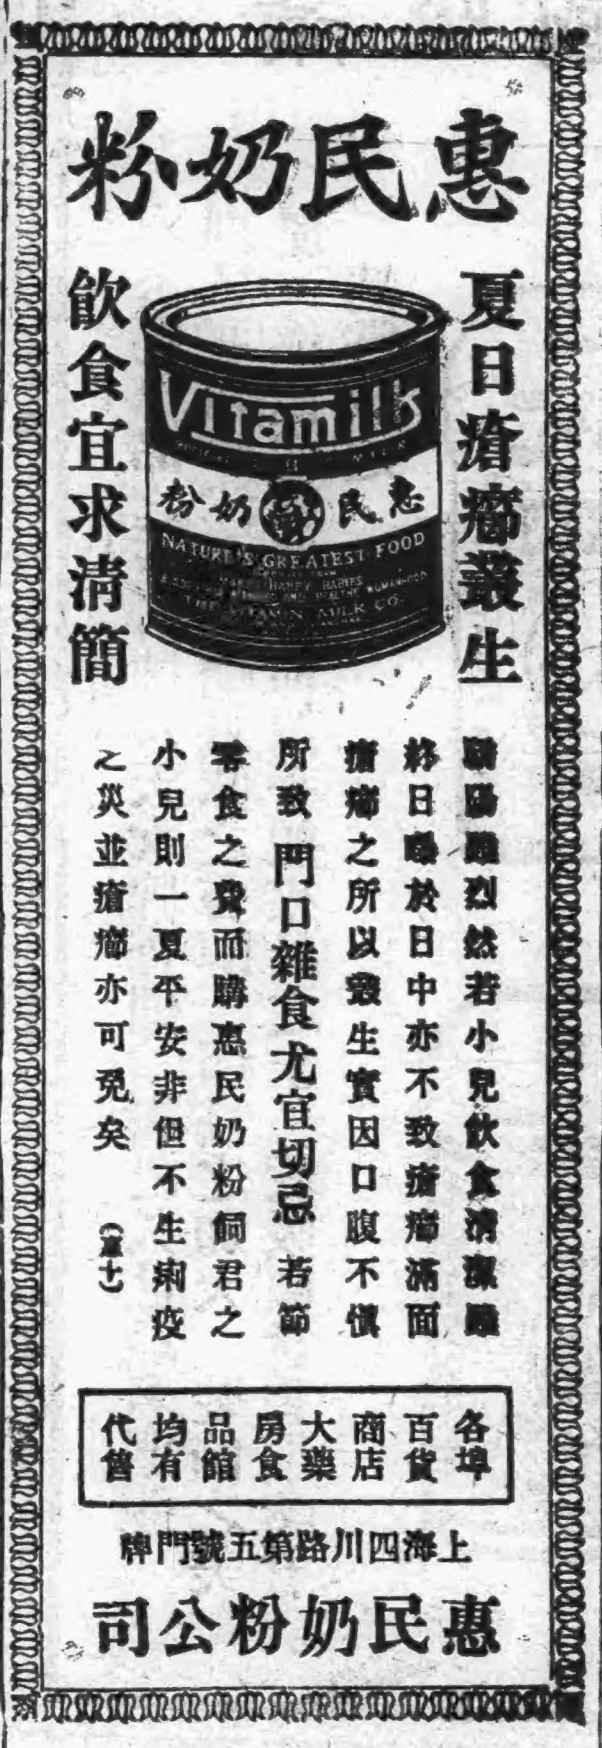 惠民奶粉
夏日瘡癤叢生
飲食宜求清簡
Vitamilk
惠民奶粉
NATURE'S GREATEST FOOD
HAPPY BABIES
HEALTHY WOMANHOOD
MILK CO.
驕陽雖烈然若小兒飲食清潔雖
終日曝於日中亦不致瘡癤滿面
瘡癤之所以叢生實因口腹不慎
所致門口雜食尤宜切忌若節
零食之費而購惠民奶粉飼君之
小兒則一夏平安非但不生痢疫
之災並瘡癤亦可免矣
各埠
百貨
商店
大藥
房食
品館
均有
代售
上海四川路第五號門牌
惠民奶粉公司